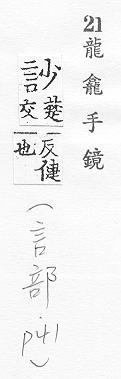 21 龍龕手鏡
楚交
反健也
(言部.p41)